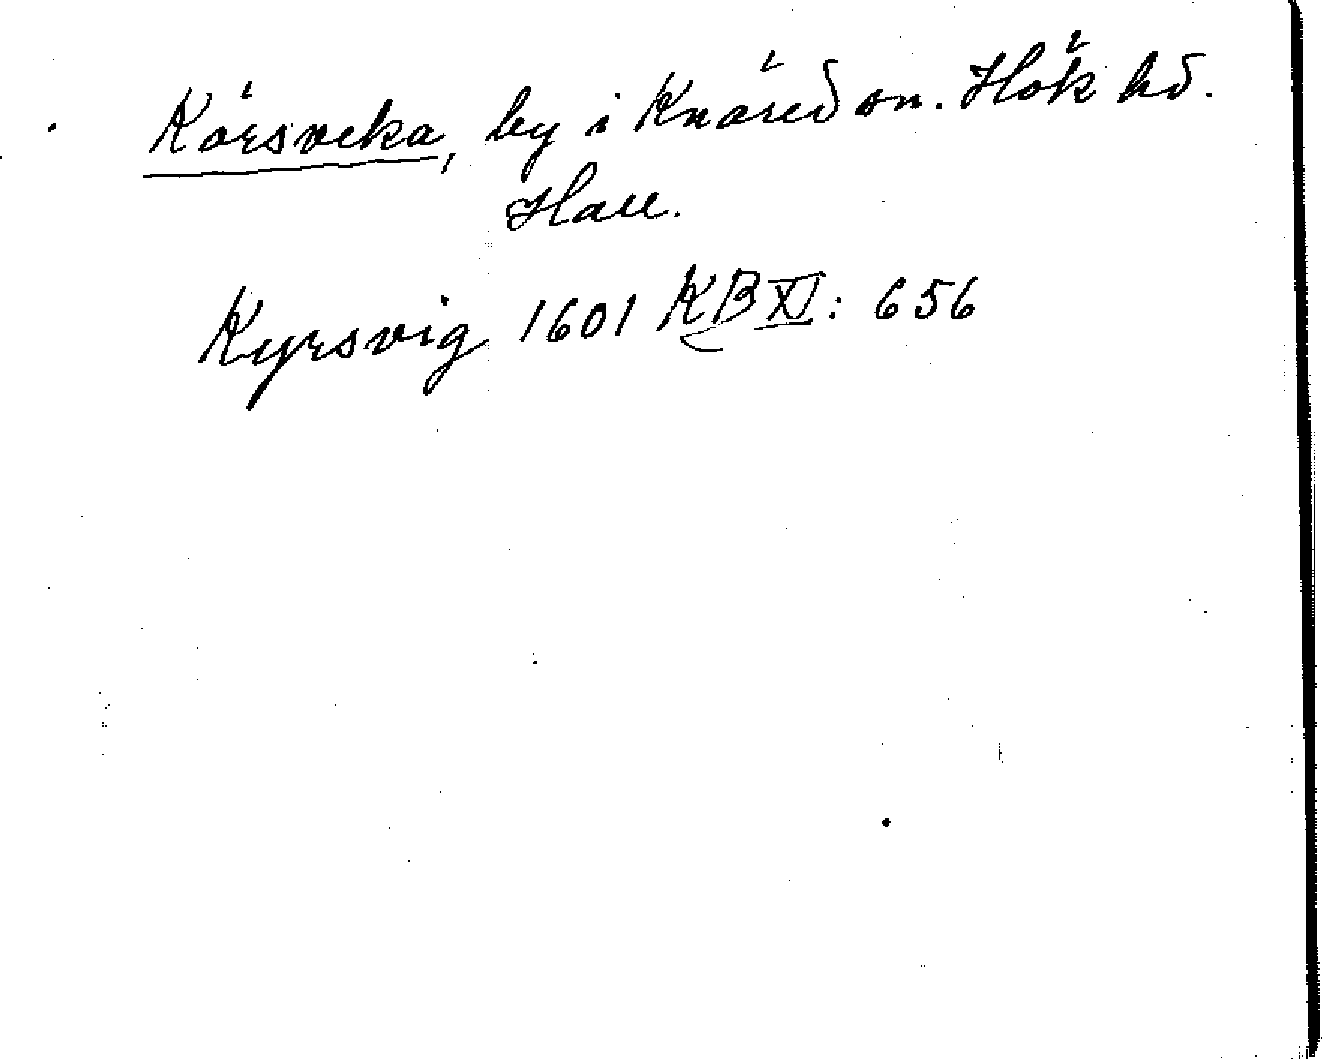 Körsveka, by i Knäred sn. Hök hd.
Hall.
Kyrsvig 1601 KB XI: 656